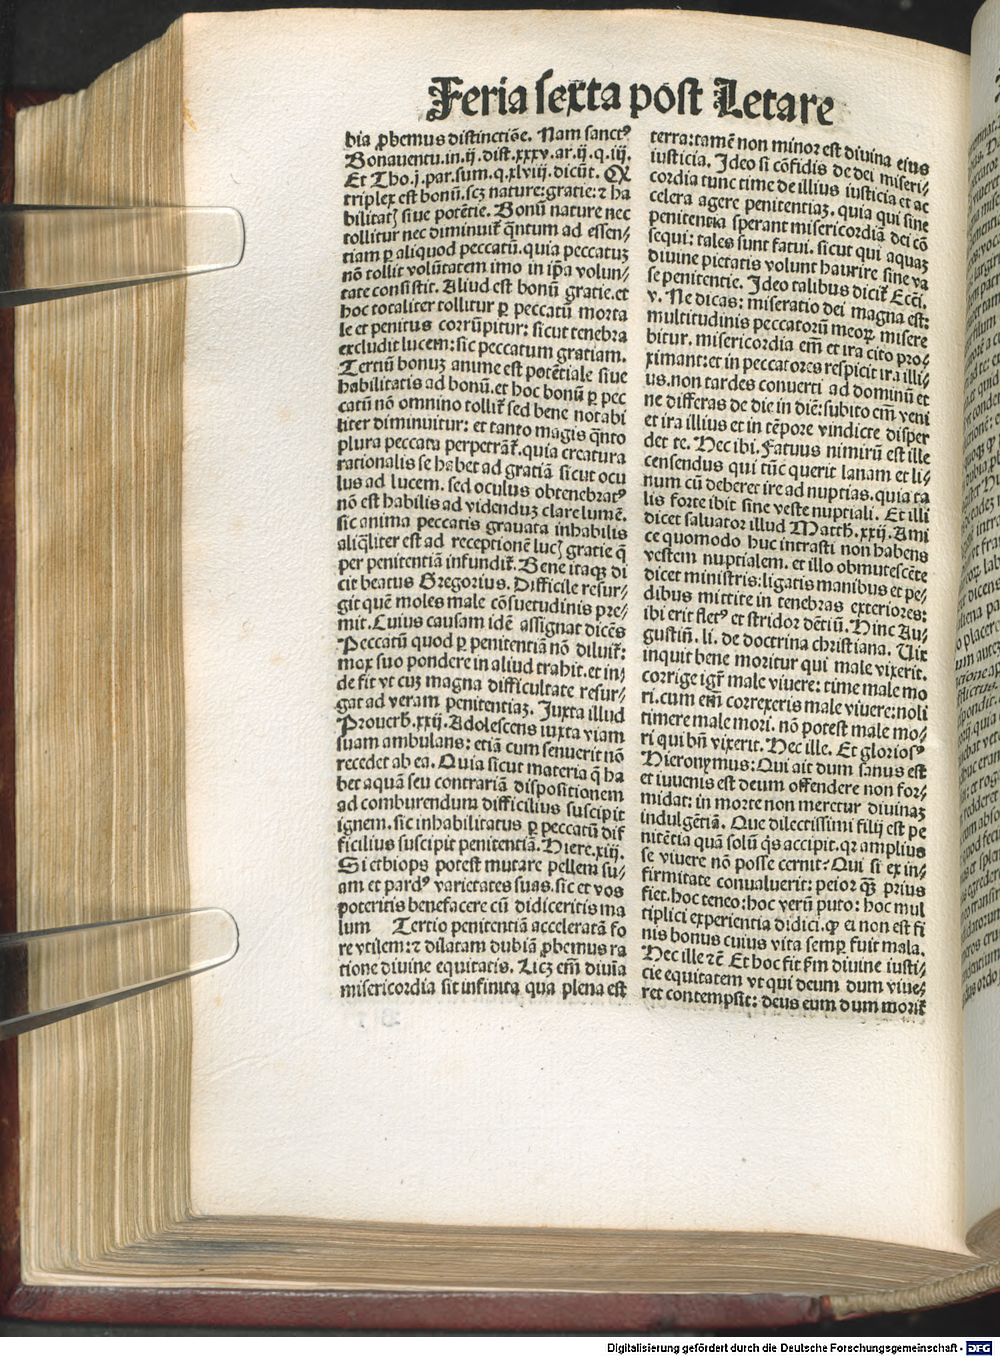 Feria sexta post Letare
bia ꝓbemus distinctiõe. Nam sanctꝰ
Bonauentu.in.ij.dist.xxxv.ar.ij.q.iij.
Et Tho.j.par.sum.q.xlviij.dicũt. Qꝫ
triplex est bonũ.scꝫ nature:gratie:⁊ ha
bilitatꝭ siue potẽtie. Bonũ nature nec
tollitur nec diminuit᷑ q̃ntum ad essen⸗
tiam ꝑ aliquod peccatũ.quia peccatuꝫ
nõ tollit volũtatem imo in ip̃a volun⸗
tate consistit. Aliud est bonũ gratie.et
hoc totaliter tollitur ꝑ peccatũ morta
le et penitus corrũpitur: sicut tenebra
excludit lucem: sic peccatum gratiam.
Tertiũ bonuꝫ anime est potẽtiale siue
habilitatis ad bonũ.et hoc bonũ ꝑ pec
catũ nõ omnino tollit᷑ sed bene notabi
liter diminuitur: et tanto magis q̃nto
plura peccata perpetrãt᷑.quia creatura
rationalis se habet ad gratiã sicut ocu
lus ad lucem. sed oculus obtenebratꝰ
nõ est habilis ad videnduꝫ clare lumẽ.
sic anima peccatis grauata inhabilis
aliq̃liter est ad receptionẽ lucꝭ gratie q̃
per penitentiã infundit᷑. Bene itaqꝫ di
cit beatus Gregorius. Difficile resur⸗
git quẽ moles male cõsuetudinis pre⸗
mit. Cuius causam idẽ assignat dicẽs
Peccatũ quod ꝑ penitentiã nõ diluit᷑:
mox suo pondere in aliud trahit.et in⸗
de fit vt cuꝫ magna difficultate resur⸗
gat ad veram penitentiaꝫ. Juxta illud
Prouerb̃.xxij. Adolescens iuxta viam
suam ambulans: etiã cum senuerit nõ
recedet ab ea. Quia sicut materia q̃ ha
bet aquã seu contrariã dispositionem
ad comburendum difficilius suscipit
ignem. sic inhabilitatus ꝑ peccatũ dif
ficilius suscipit penitentiã. Hiere.xiij.
Si ethiops potest mutare pellem su⸗
am et pardꝰ varietates suas. sic et vos
poteritis benefacere cũ didiceritis ma
lum Tertio penitentiã acceleratã fo
re vtilem:⁊ dilatam dubiã ꝓbemus ra
tione diuine equitatis. Licꝫ em̃ diuĩa
misericordia sit infinita qua plena est
terra:tamẽ non minor est diuina eius
iusticia. Ideo si cõfidis de dei miseri⸗
cordia tunc time de illius iusticia et ac
celera agere penitentiaꝫ. quia qui sine
penitentia sperant misericordiã dei cõ
sequi: tales sunt fatui. sicut qui aquaꝫ
diuine pietatis volunt haurire sine va
se penitentie. Ideo talibus dicit᷑ Eccĩ.
v. Ne dicas: miseratio dei magna est:
multitudinis peccatorũ meoꝝ misere
bitur. misericordia em̃ et ira cito pro⸗
ximant:et in peccatores respicit ira illi⸗
us.non tardes conuerti ad dominũ et
ne differas de die in diẽ: subito em̃ veni
et ira illius et in tẽpore vindicte disper
det te. Hec ibi. Fatuus nimirũ est ille
censendus qui tũc querit lanam et li⸗
num cũ deberet ire ad nuptias. quia ta
lis forte ibit sine veste nuptiali. Et illi
dicet saluator illud Matth̃.xxij. Ami
ce quomodo huc intrasti non habens
vestem nuptialem. et illo obmutescẽte
dicet ministris: ligatis manibus et pe⸗
dibus mittite in tenebras exteriores:
ibi erit fletꝰ et stridor dẽtiũ. Hinc Au⸗
gustiñ. li. de doctrina christiana. Vix
inquit bene moritur qui male vixerit.
corrige igr̃ male viuere: time male mo
ri.cum em̃ correxeris male viuere:noli
timere male mori. nõ potest male mo⸗
ri qui bñ vixerit. Hec ille. Et gloriosꝰ
Hieronymus: Qui ait dum sanus est
et iuuenis est deum offendere non for⸗
midat: in morte non meretur diuinaꝫ
indulgẽtiã. Que dilectissimi filij est pe
nitẽtia quã solũ q̇s accipit.qꝛ amplius
se viuere nõ posse cernit? Qui si ex in⸗
firmitate conualuerit: peior qꝫ prius
fiet.hoc teneo: hoc verũ puto: hoc mul
tiplici experientia didici.ꝙ ei non est fi
nis bonus cuius vita semꝑ fuit mala.
Hec ille ⁊c̃ Et hoc fit ẜm diuine iusti⸗
cie equitatem vt qui deum dum viue⸗
ret contempsit: deus eum dum morit᷑
Digitalisierung gefördert durch die Deutsche Forschungsgemeinschaft - DFG